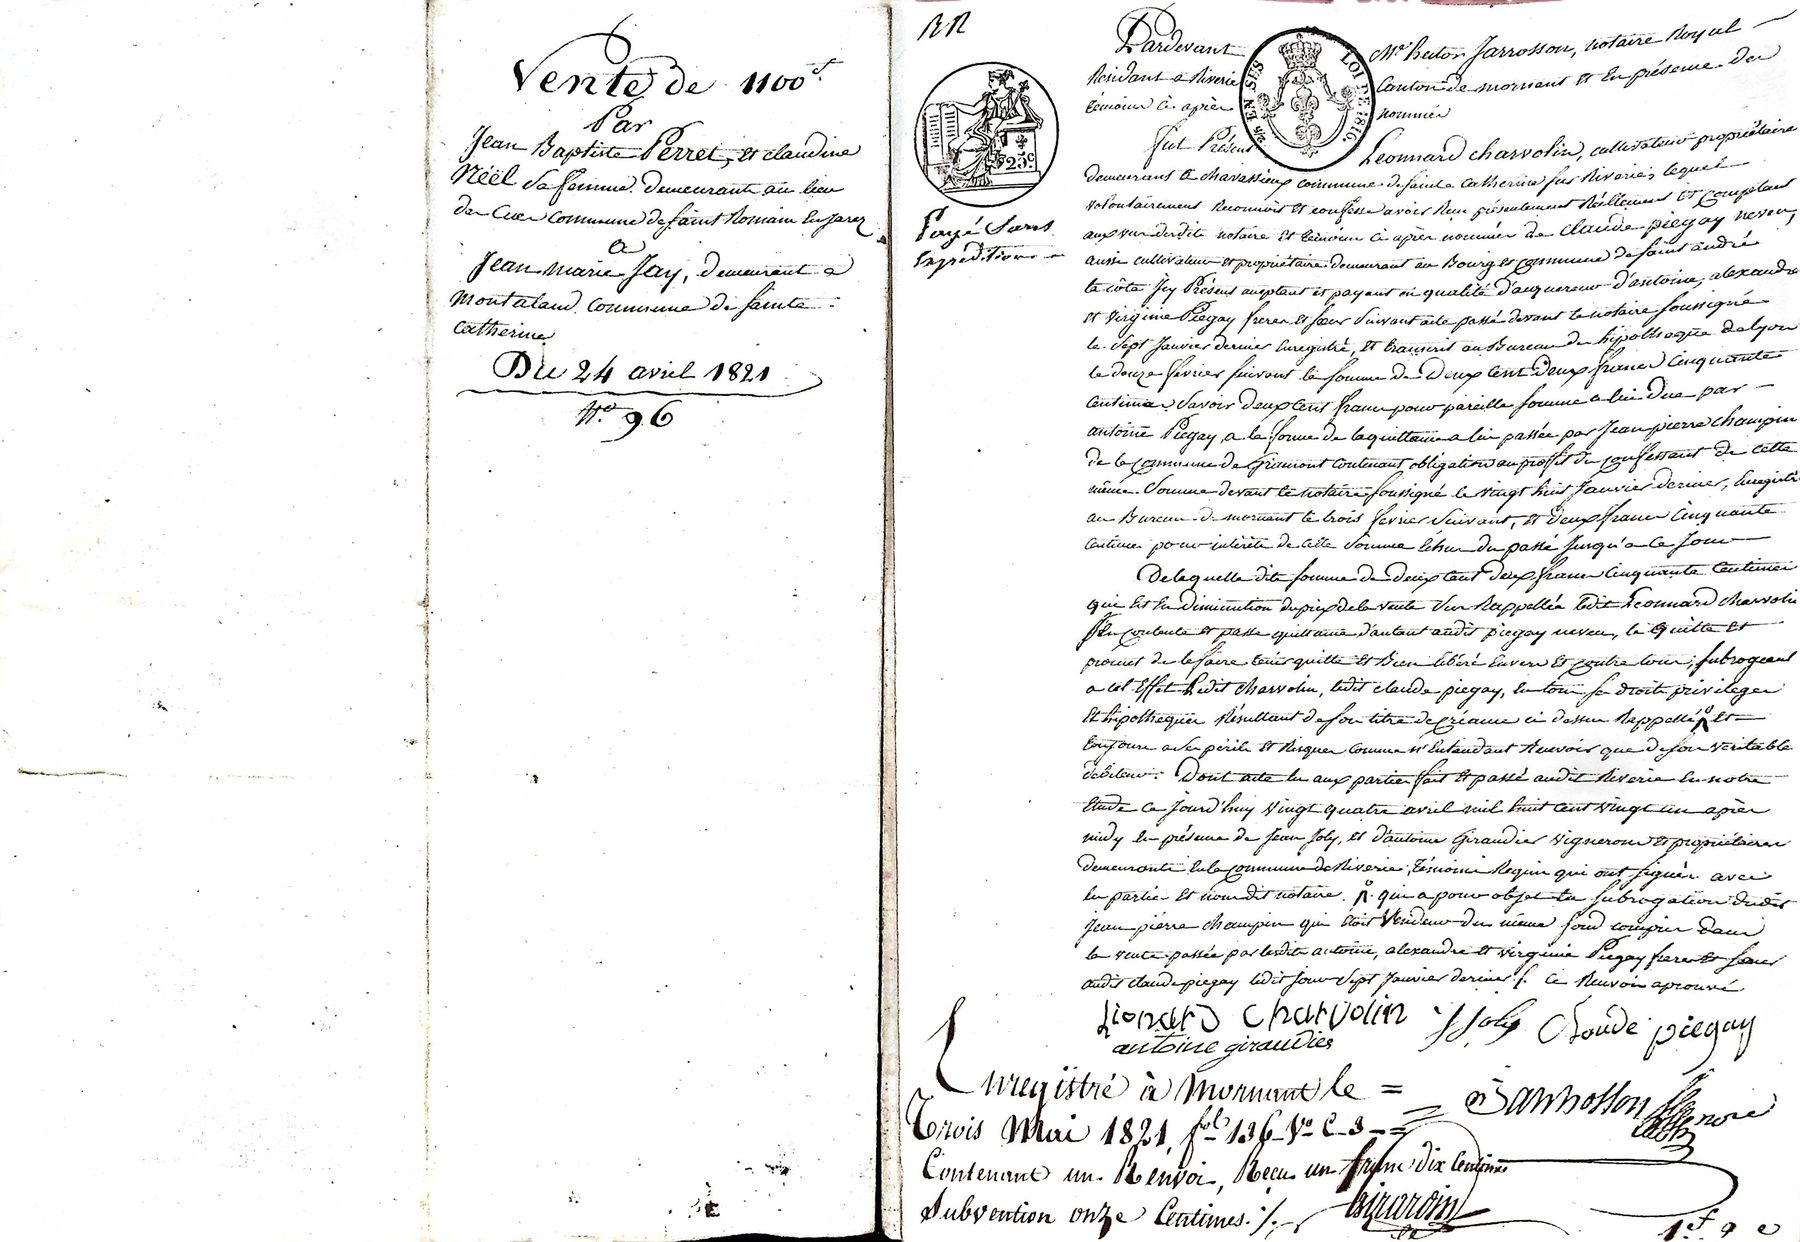 Vente de 1100 f.
Par
Jean Baptiste Perret, et claudine
Néël sa femme demeurant au lieu
de commune de saint Romain en jarez
a
Jean marie Jay, demeurant a
montaland commune de sainte
catherine
Du 24 avril 1821
N.o 96
Pardevant Me hector Jarrosson, notaire Royal
Résidant a Riverie Canton de mornant et en présence des
témoins ci après nommés
EN SES LOI DE 1816
25 c
Payé sans
Expédition
fut Présent Leonnard charvolin, cultivateur propriétaire
demeurant a chavassieux commune de sainte Catherine sur Riverie, lequel
volontairement Reconnoit et confesse avoir Reçu présentement Réellement et comptant
aux vue desdits notaire et témoins ci après nommés de claude piegay neveu,
aussi cultivateur et propriétaire demeurant au Bourg et commune de saint andré
la côte Icy Présent acceptant et payant en qualité d'acquereur d'antoine, alexandre
et virginie Piegay freres et sœur suivant acte passé devant le notaire soussigné
le sept Janvier dernier Enregistré, et transcrit au Bureau des hipothèques de Lyon
le douze fevrier suivant la somme de deux cent deux francs cinquante
centimes savoir deux cent francs pour pareille somme a lui due par
antoine Piegay, a la forme de la quittance a lui passée par Jean pierre champin
de la commune de contenant obligation au proffit du confessant de cette
même somme devant le notaire soussigné le vingt huit Janvier dernier, Enregistré
au Bureau de mornant le trois fevrier suivant, et deux francs Cinquante
Centimes pour intérêts de cette somme Echus du passé Jusqu'a ce Jour
De laquelle dite somme de deux cent deux francs cinquante centimes
qui est en diminution du prix de la vente sus Rappellée ledit Leonnard charvolin
s'en contente et passe quittance d'autant audit piegay neveu, le quitte et
promet de le faire tenir quitte et Bien libéré Envers et contre tous, subrogeant
a cet Effet ledit charvolin, ledit claude piegay, en tous ses droits privileges
et hipothèques Résultant de son titre de créance ci dessus Rappellé et
toujours a ses périls et Risques comme n'Entendant Recevoir que de son véritable
débiteur. Dont acte lu aux parties fait et passé audit Riverie en notre
Etude ce jourd'huy vingt quatre avril mil huit cent vingt un après
midy en présence de Jean Joly, et d'antoine Giraudier vignerons et propriétaires
demeurants en la commune de Riverie, témoins Requis qui ont signés avec
les parties et nous dit notaire. qui a pour objet la subrogation dudit
Jean pierre champin qui étoit vendeur du même fond compris dans
la vente passée par lesdits antoine, alexandre et virginie Piegay freres et sœur
audit claude piegay ledit jour sept Janvier dernier /. Ce Renvoi aprouvé
Lionard Charvolin J Joly Claude piegay
antoine giraudier
Enregistré à Mornant le =
Trois Mai 1821 fol 136 Vo C. 3
Contenant un Renvoi, Reçu un franc dix Centimes
Subvention onze Centimes. /.
Jarrosson
Girardin